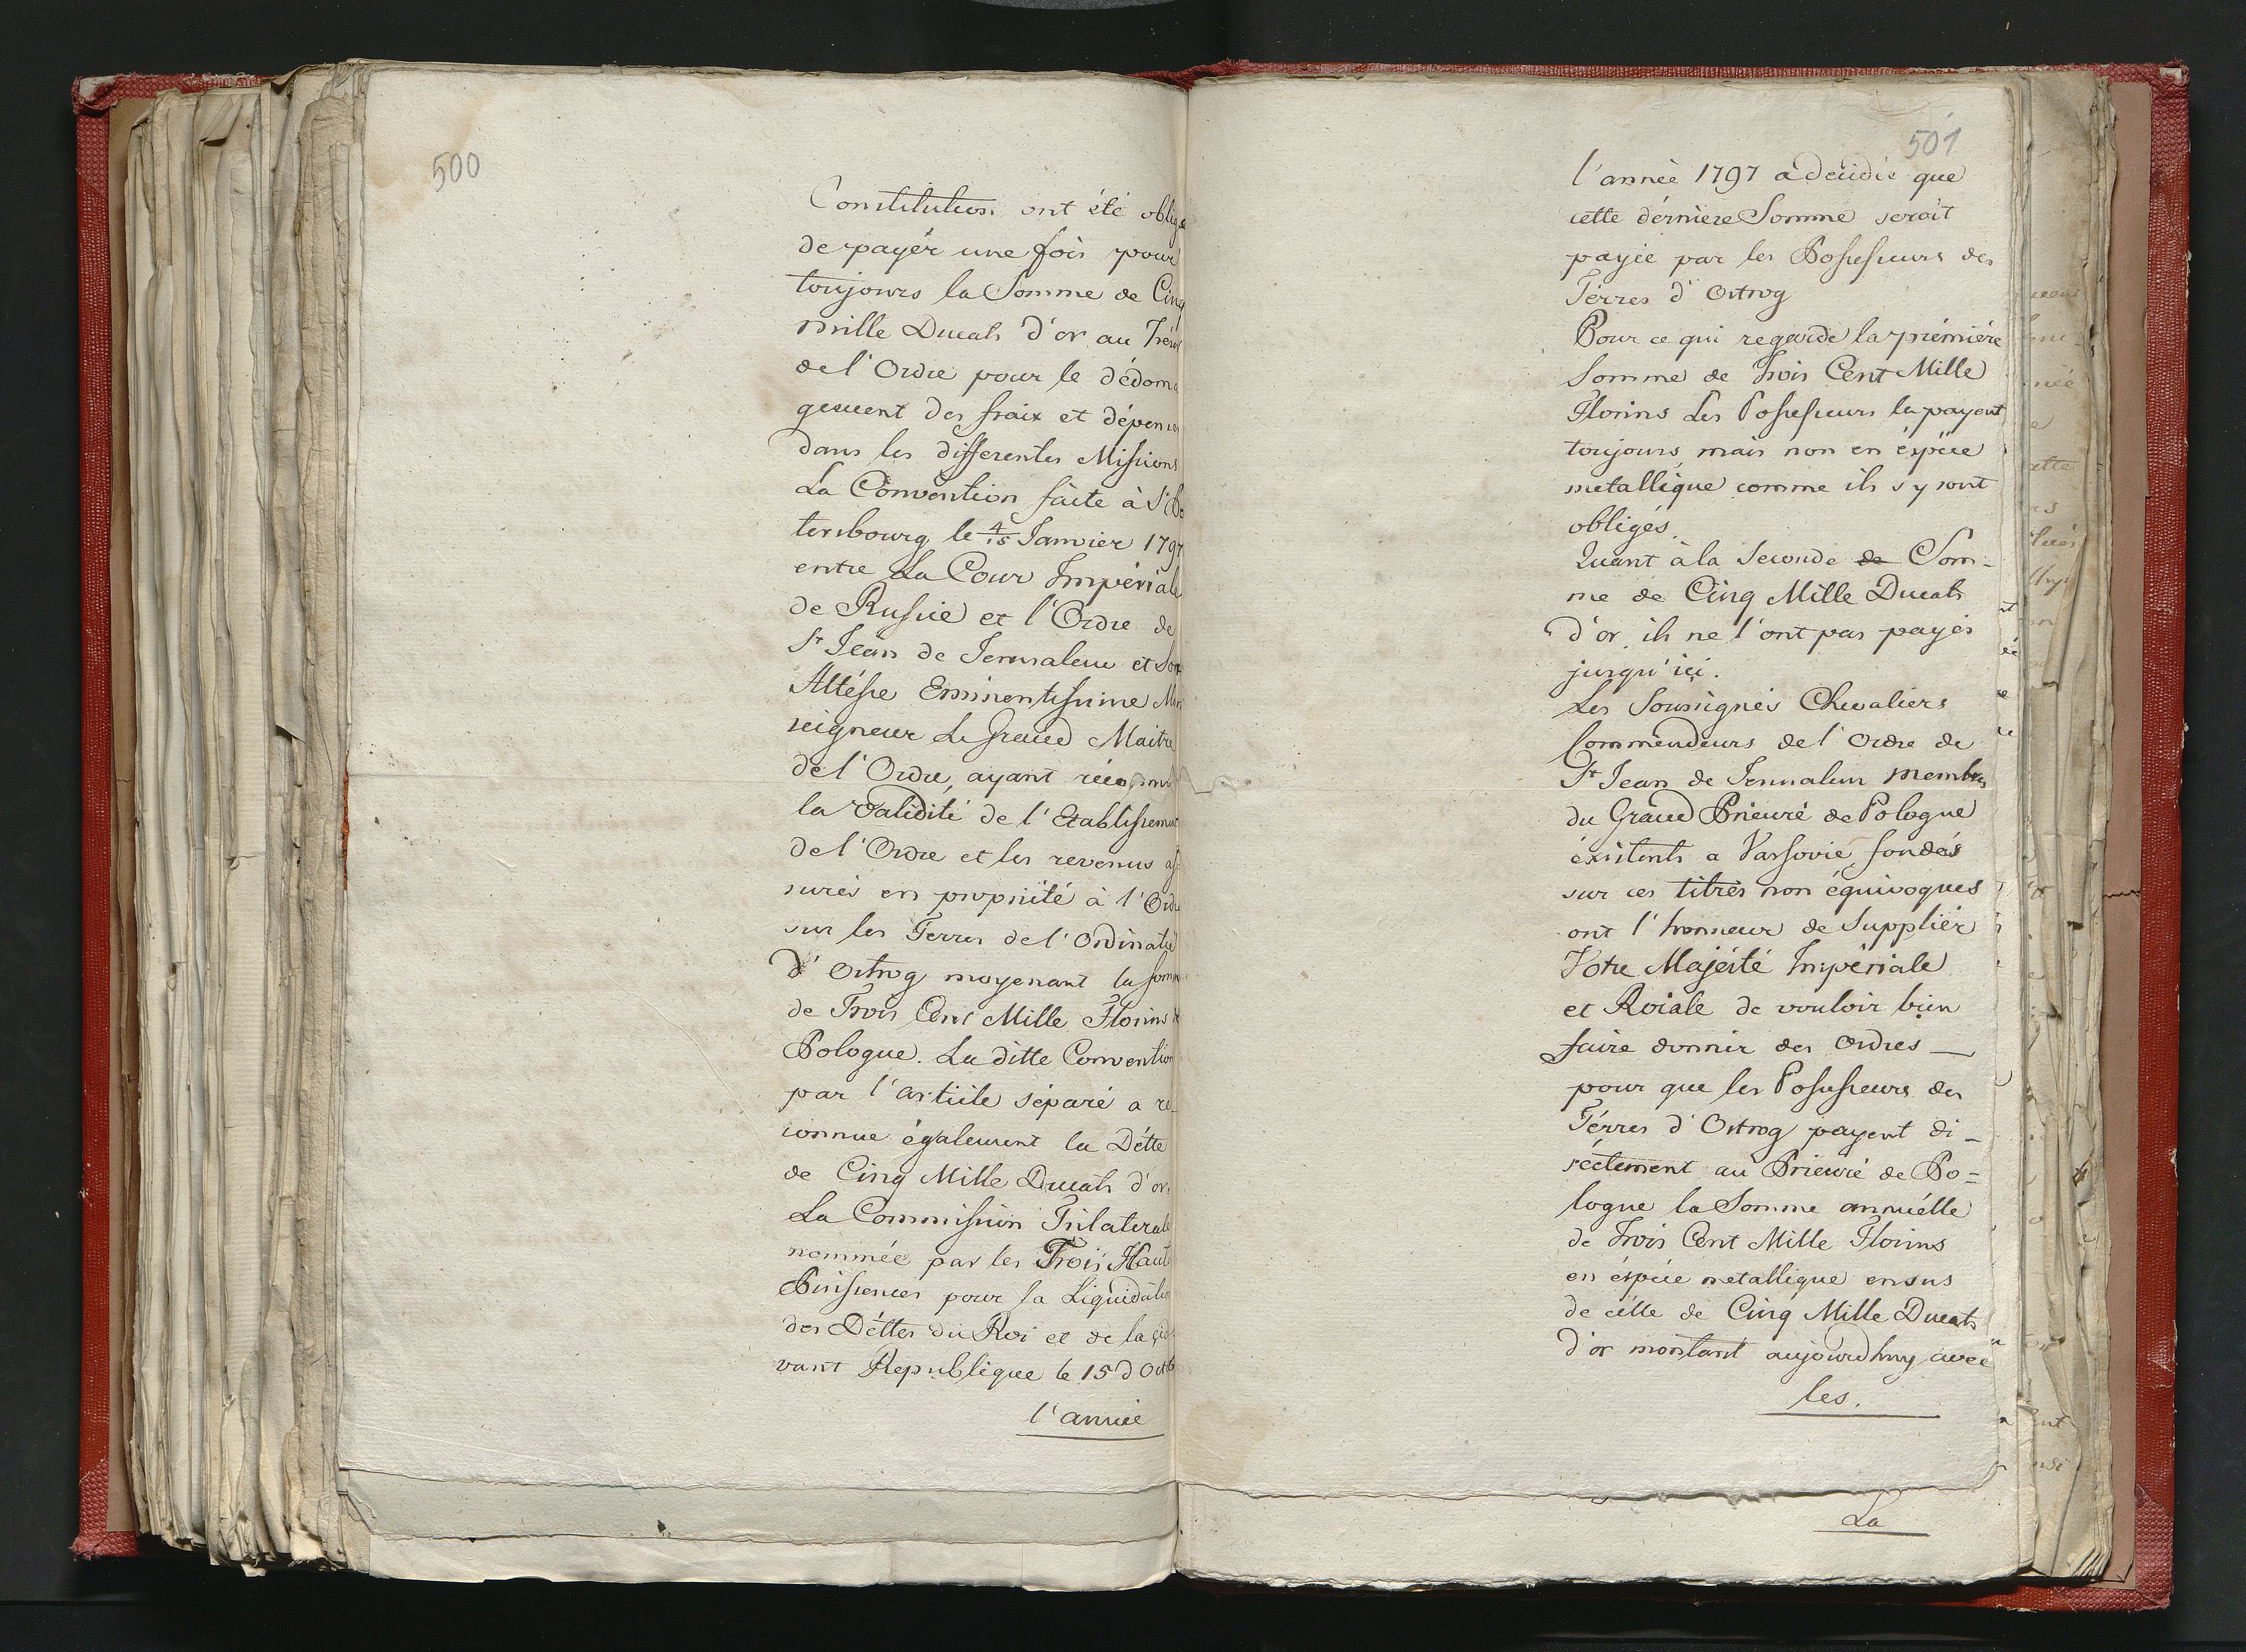 500
Constitution ont été oblig
de payér une fois pour
toujours la Somme de Cinq
mille Ducats d'or au Trés
de l'Ordre pour le dédoma
gement des fraix et dépenses
dans les differentes Missions
La Convention faite à St Pe
tersbourg le 4/15 Janvier 1797
entre La Cour Impériale
de Russie et l'Ordre de
St Jean de Jerusalem et Son
Altésse Eminentissime Mon
seigneur Le Grand Maitre
de l'Ordre, ayant réconnu
la Validité de l'Etablissement
de l'Ordre et les revenus as
surés en propriité à l'Ordre
sur les Terres de l'Ordinatie
d'Ostrog moyenant la somme
de Trois Cent Mille Florins de
Pologne. La ditte Convention
par l'article séparé a re-
connue également la Détte
de Cinq Mille Ducats d'or.
La Commission Trilaterale
nommée par les Trois Haut
Puissences pour la Liquidatio
des Déttes du Roi et de la çi d
vant Republique le 15 d Octb
l'année
501
l'annèe 1797 a décidé que
cette dérniere Somme seroit
payée par les Possesseurs des
Térres d'Ostrog
Pour ce qui regarde la prémiére
Somme de Trois Cent Mille
Florins Les Possesseurs la payent
toujours mais non en éspèce
metallique comme ils s'y sont
obligés.
Quant à la Seconde de Som-
me de Cinq Mille Ducats
d'or, ils ne l'ont pas payés
jusqu'ici.
Les Soussignés Chevaliers
Commendeurs de l'Ordre de
St Jean de Jerusalem membres
du Grand Prieuré de Pologne
éxistents a Varsovie, fondés
sur ces titrés non équivoques
ont l'honneur de Supplier
Votre Majésté Impériale
et Roiale de vouloir bien
faire donnér des Ordres —
pour que les Possesseurs des
Térres d'Ostrog payent di-
réctement au Prieuré de Po=
logne la Somme annuélle
de Trois Cent Mille Florins
en éspèce metallique en sus
de célle de Cinq Mille Ducats
d'or montant aujourdhuy avec
les.
La